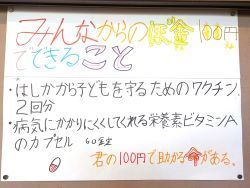 みんなからのぼ金100円
でできること
・はしかから子どもを守るためのワクチン
2回分
・病気にかかりにくくしてくれる栄養素ビタミンA
のカプセル 60錠
君の100円で助かる命がある。